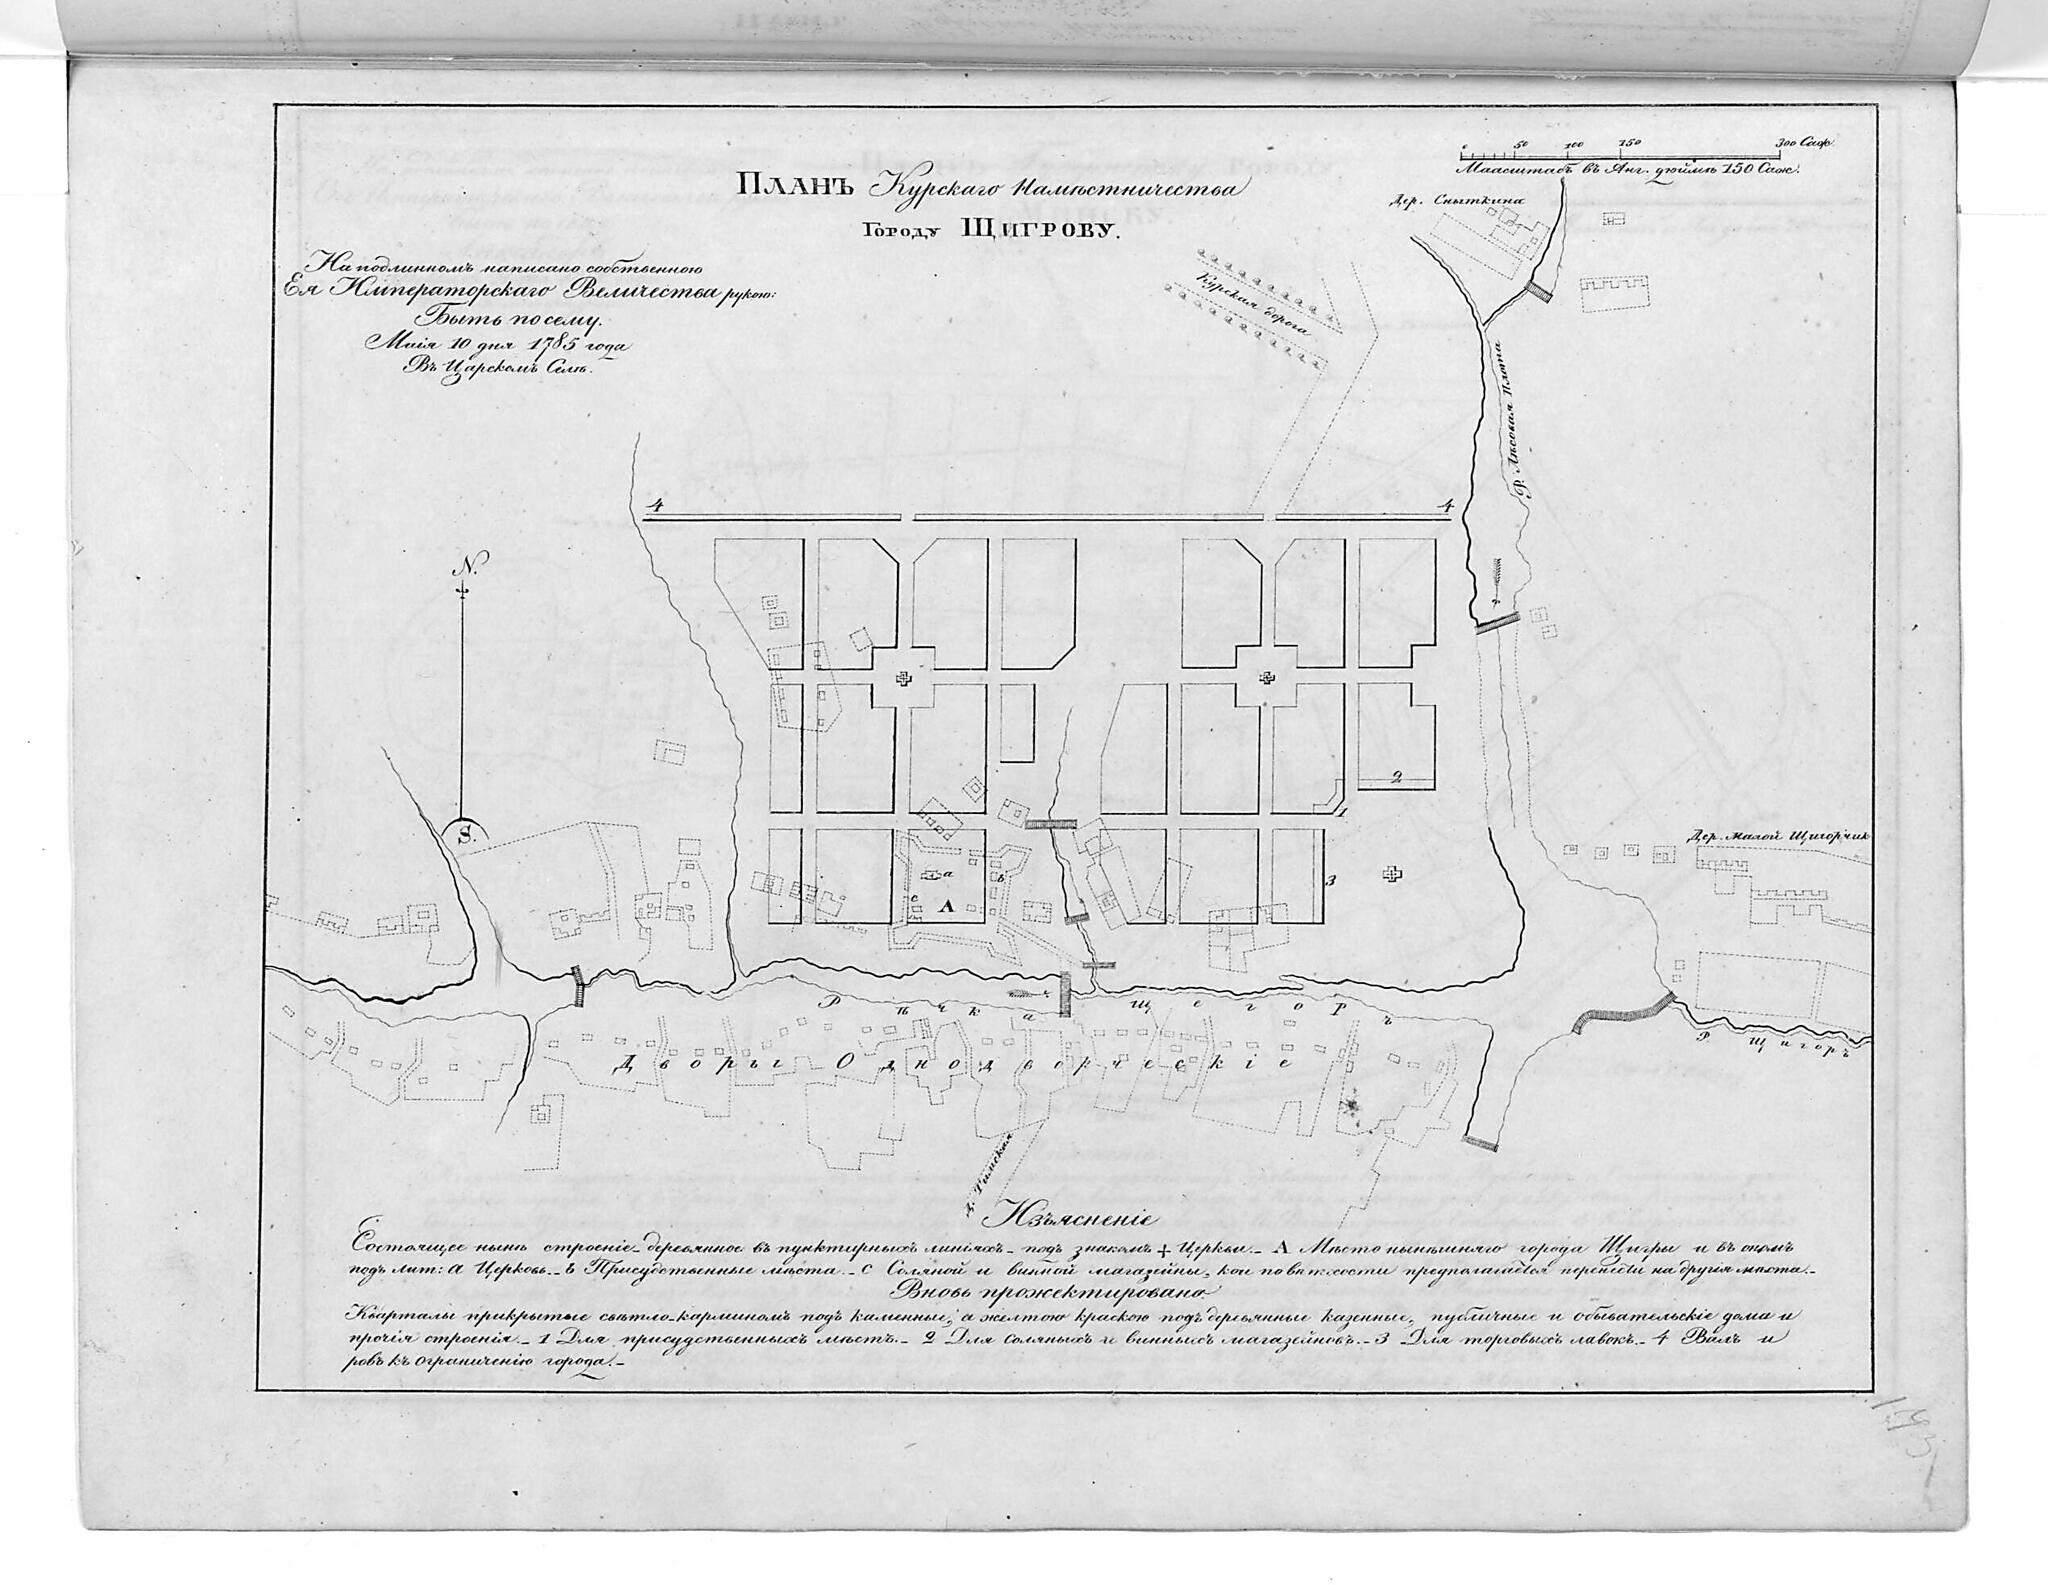 0 50 100 150 300 Саж.
Маасштабъ въ Анг. дюймѣ 150 Саж.
ПЛАНЪ Курскаго Намѣстничества
Городу ЩИГРОВУ.
На подлинномъ написано собственною
Ея Императорскаго Величества рукою:
Быть по сему.
Маія 10 дня 1785 года
Въ Царскомъ Селѣ.
Дер. Сныткина
Курская дорога
Р. Лѣсовая Плота
4
4
N.
S.
2
1
3
Дер. малой Щигорчик
a
b
c
A
Рѣчка Щегоръ
Р. Щигоръ
Дворы Однодворческіе
Изъясненіе
Состоящее нынѣ строеніе деревянное въ пунктирныхъ линіяхъ - подъ знакомъ + Церкви. - А Мѣсто нынѣшняго города Щигры и въ ономъ
подъ лит: a Церковь. - b Присудственные мѣста. - c Соляной и винной магазейны, кои по ветхости предполагается перенести на другія мѣста. -
Вновь прожектировано.
Кварталы прикрытые свѣтло-карминомъ подъ каменные, а желтою краскою подъ деревянные казенные, публичные и обывательскіе дома и
прочія строенія. - 1 Для присудственныхъ мѣстъ. - 2 Для соляныхъ и винныхъ магазейновъ. - 3 Для торговыхъ лавокъ. - 4 Валъ и
ровъ къ ограниченію города. -